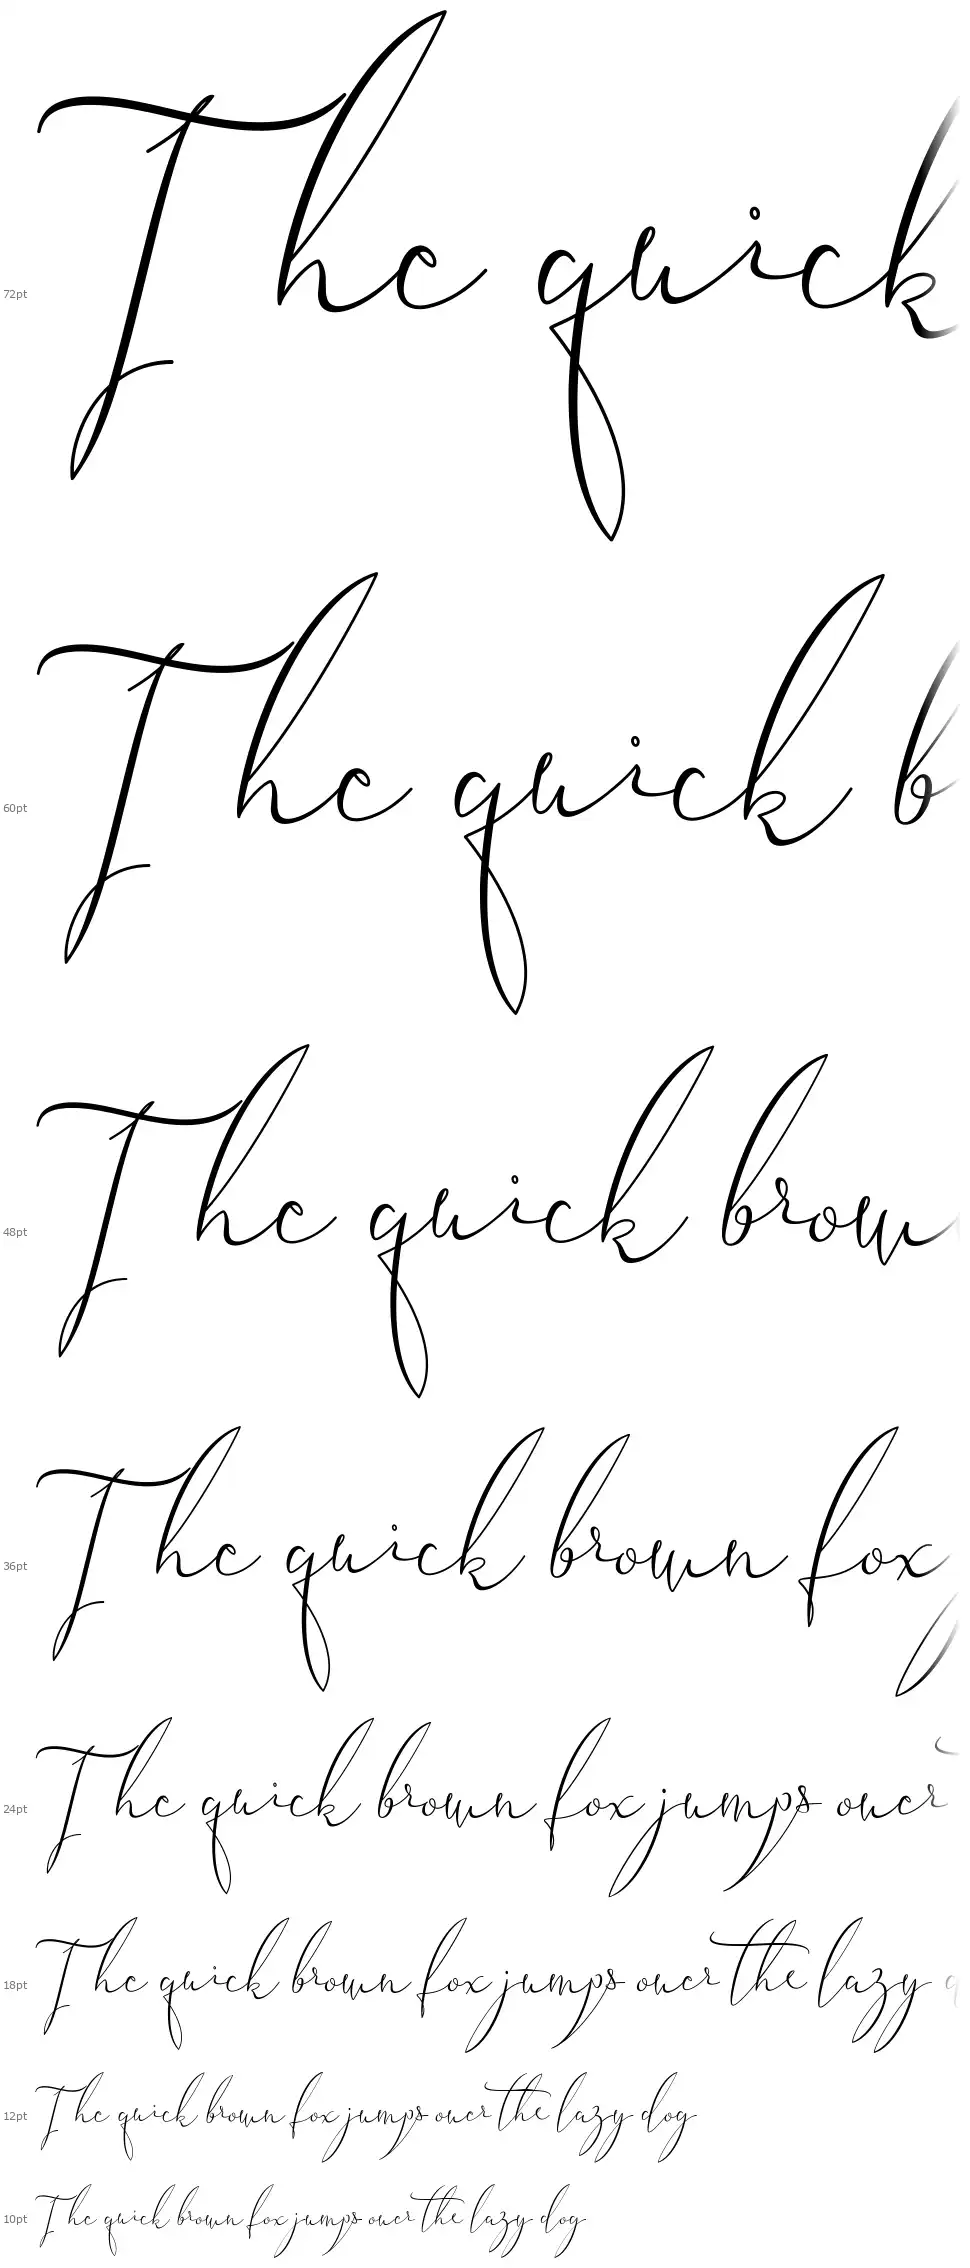 72pt The quick
60pt The quick b
48pt The quick brown
36pt The quick brown fox
24pt The quick brown fox jumps over
18pt The quick brown fox jumps over the lazy
12pt The quick brown fox jumps over the lazy dog
10pt The quick brown fox jumps over the lazy dog